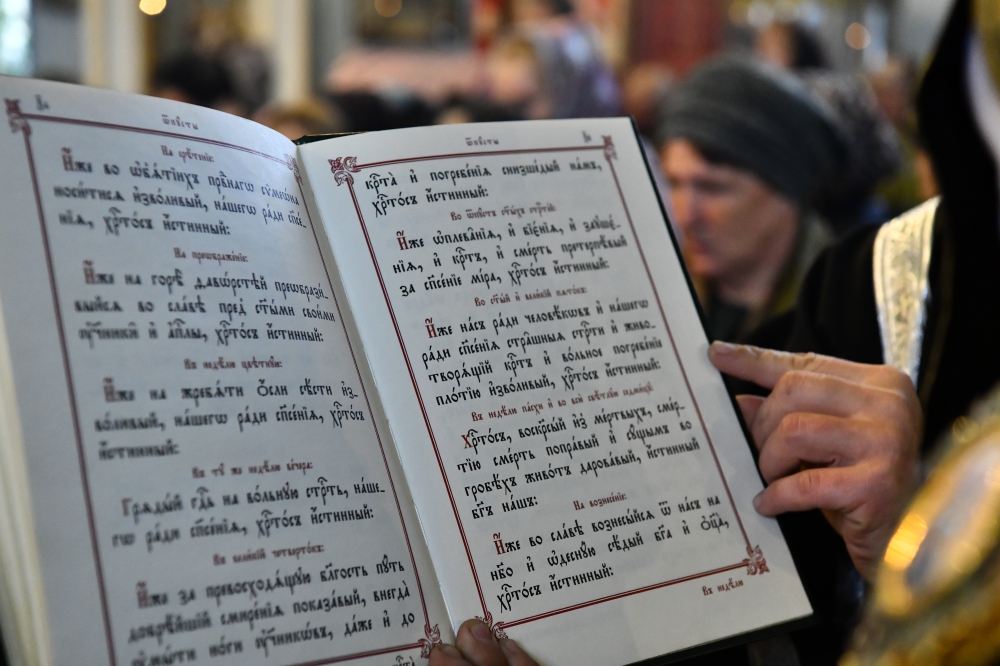 Ѿпꙋсты
На срѣ́тенїе:
И҆́же во ѡ҆б̾ѧ́тїихъ пра́веднагѡ сѷмеѡ́на
носи́тисѧ и҆зво́ливый, на́шегѡ ра́ди спⷭ҇е́-
нїѧ, хрⷭ҇то́съ и҆́стинный:
На преѡбраже́нїе:
И҆́же на горѣ̀ ѳаѡ́рстѣй преѡбрази́-
выйсѧ во сла́вѣ пред̾ ст҃ы́ми свои́ми
ᲂу҆чн҃ки̑ и҆ а҆пⷭ҇лы, хрⷭ҇то́съ и҆́стинный:
Въ недѣ́лю цвѣ́тнꙋю:
И҆́же на жребѧ́ти ѻ҆́сли сѣ́сти и҆з-
во́ливый, на́шегѡ ра́ди спⷭ҇е́нїѧ, хрⷭ҇то́съ
и҆́стинный:
Въ тꙋ́ же недѣ́лю ве́чера:
Грѧды́й гдⷭ҇ь на во́льнꙋю стрⷭ҇ть, на́ше-
гѡ ра́ди спⷭ҇е́нїѧ, хрⷭ҇то́съ и҆́стинный:
Въ вели́кїй четверто́къ:
И҆́же за превосходѧ́щꙋю бл҃гость пꙋ́ть
добрѣ́йшїй смире́нїѧ показа́вый, внегда̀
ᲂу҆мы́ти но́ги ᲂу҆чн҃кѡ́въ, да́же и҆ до
Ѿпꙋсты
крⷭ҇та̀ и҆ погребе́нїѧ снизше́дый на́мъ,
хрⷭ҇то́съ и҆́стинный:
Во ѿпꙋ́стъ ст҃ы́хъ стрⷭ҇те́й:
И҆́же ѡ҆плева̑нїѧ, и҆ бїє́нїѧ, и҆ заꙋше̑-
нїѧ, и҆ крⷭ҇тъ, и҆ сме́рть претерпѣ́вый
за спⷭ҇е́нїе мі́ра, хрⷭ҇то́съ и҆́стинный:
Во ст҃ы́й и҆ вели́кїй пѧто́къ:
И҆́же на́съ ра́ди человѣ́кѡвъ и҆ на́шегѡ
ра́ди спⷭ҇е́нїѧ стра̑шныѧ стрⷭ҇ти и҆ живо-
творѧ́щїй крⷭ҇тъ и҆ во́льное погребе́нїе
пло́тїю и҆зво́ливый, хрⷭ҇то́съ и҆́стинный:
Въ недѣ́лю па́схи и҆ во всю̀ свѣ́тлꙋю седми́цꙋ:
Хрⷭ҇то́съ, воскр҃сый и҆з̾ ме́ртвыхъ, сме́р-
тїю сме́рть попра́вый и҆ сꙋ́щымъ во
гробѣ́хъ живо́тъ дарова́вый, и҆́стинный
бг҃ъ на́шъ:
На вознесе́нїе:
И҆́же во сла́вѣ вознесы́йсѧ ѿ на́съ на
нб҃о и҆ ѡ҆деснꙋ́ю сѣды́й бг҃а и҆ ѻ҆ц҃а̀,
хрⷭ҇то́съ и҆́стинный:
Въ недѣ́лю